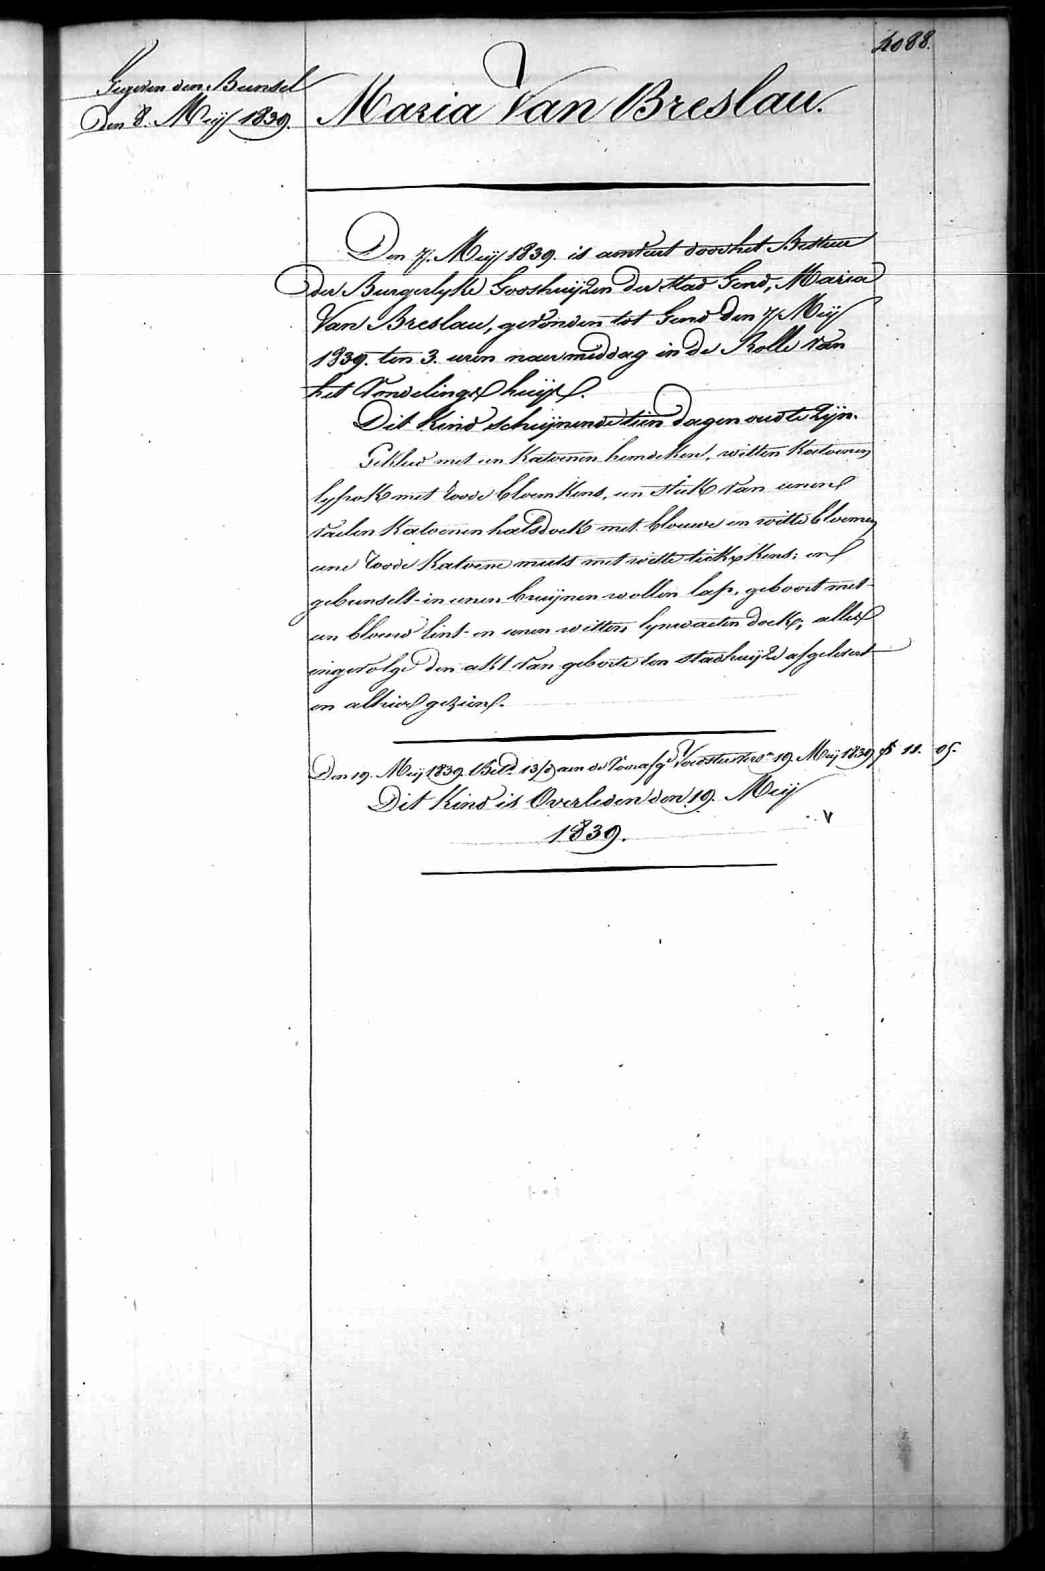 4088.
Gegeven den Bunsel
Den 8. Meij 1839.
Maria Van Breslau.
Den 7. Meij 1839. is aenveert door het Bestuer
der Burgerlyke Godshuijzen der stad Gend, Maria
Van Breslau, gevonden tot Gend den 7 Meij
1839. ten 3. uren naer middag in de Rolle van
het Vondelings huijs.
Dit Kind schijnende tien dagen oud te zijn.
Gekleed met een Katoenen hemdeken, witten Katoenen
lyfrok met roode bloemkens, een stuk van eenen
vaelen Katoenen halsdoek met blauwe en witte bloemen
eene roode Katoene muts met witte tickxkens; en
gebunselt in eenen bruijnen wollen lap, geboort met
een blauw lint en eenen witten lynwaeten doek, alles
ingevolge den akt van geboorte ten stadhuijze afgelevert
en alhier gezien.
Den 19. Meij 1839. Betd. 13/d aen de Voedster 19. Meij 1839 fs 11. 05.
Dit Kind is Overleden den 19. Meij
1839.